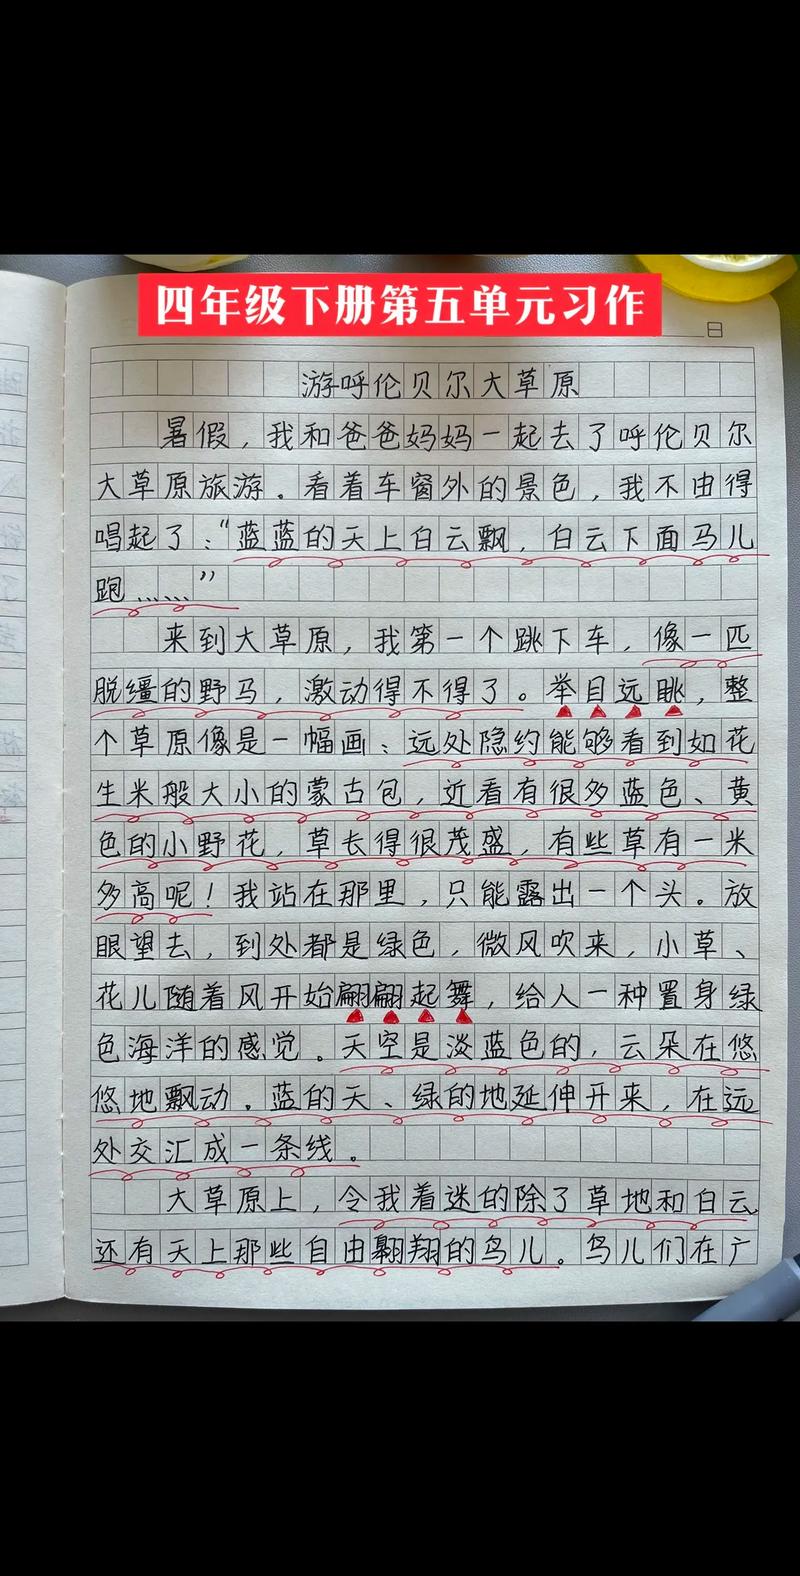 四年级下册第五单元习作
日
游呼伦贝尔大草原
暑假，我和爸爸妈妈一起去了呼伦贝尔
大草原旅游。看着车窗外的景色，我不由得
唱起了：“蓝蓝的天上白云飘，白云下面马儿
跑……”
来到大草原，我第一个跳下车，像一匹
脱缰的野马，激动得不得了。举目远眺，整
个草原像是一幅画：远处隐约能够看到如花
生米般大小的蒙古包，近看有很多蓝色、黄
色的小野花，草长得很茂盛，有些草有一米
多高呢！我站在那里，只能露出一个头。放
眼望去，到处都是绿色，微风吹来，小草、
花儿随着风开始翩翩起舞，给人一种置身绿
色海洋的感觉。天空是淡蓝色的，云朵在悠
悠地飘动。蓝的天、绿的地延伸开来，在远
处交汇成一条线。
大草原上，令我着迷的除了草地和白云，
还有天上那些自由翱翔的鸟儿。鸟儿们在广